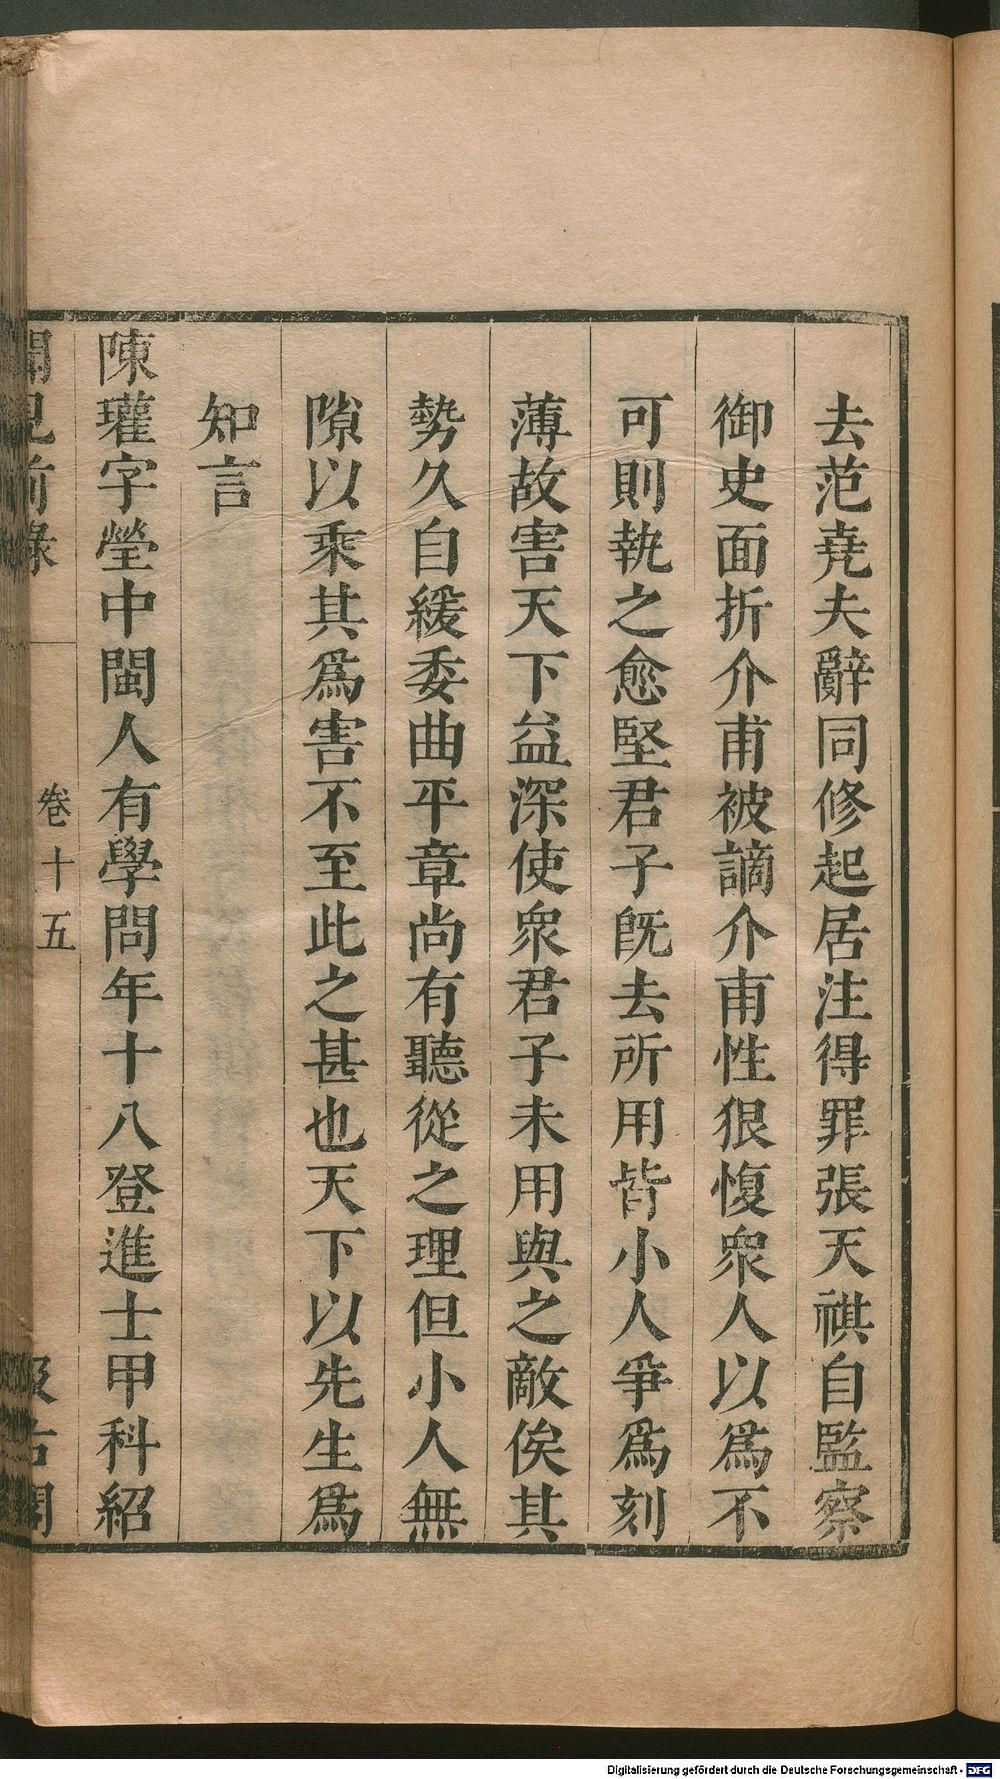 去范堯夫辭同修起居注得罪張天祺自監察
御史面折介甫被謫介甫性狠愎衆人以爲不
可則執之愈堅君子旣去所用皆小人爭爲刻
薄故害天下益深使衆君子未用與之敵俟其
勢久自緩委曲平章尚有聽從之理但小人無
隙以乘其爲害不至此之甚也天下以先生爲
知言
陳瓘字瑩中閩人有學問年十八登進士甲科紹
聞見前錄
卷十五
汲古閣
Digitalisierung gefördert durch die Deutsche Forschungsgemeinschaft - DFG